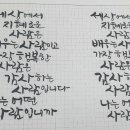 세상에서
지혜로운
사람은
배우는 사람이고
가장 행복한
사람은
감사하는
사람입니다
나는 어떤
사람입니까
세상에서
지혜로운
사람은
배우는 사람
가장 행복한
사람은
감사
사람
나는
사람